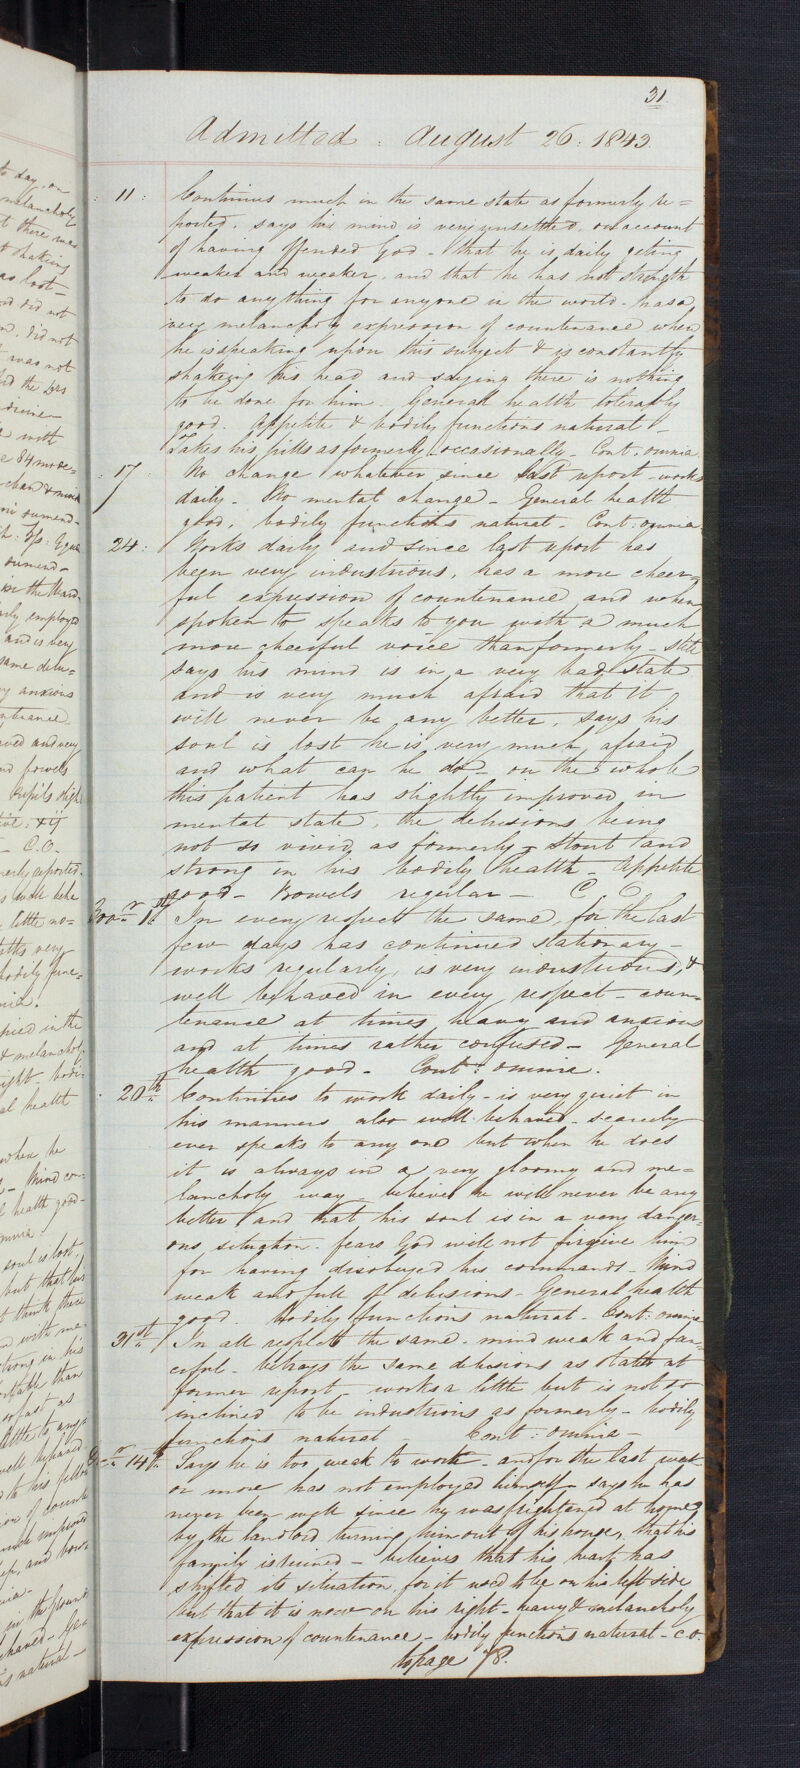 31
Admitted : August 26 : 1843.
: 11 : Continues much in the same state as formerly re=
ported. says his mind is very unsettled, on account
of having offended God - that he is daily geting
weaker and weaker, and that he has not strength
to do anything for anyone in the world - has a
very melancholy expression of countenance when
he is speaking upon this subject & is constantly
shakeing his head and saying there is nothing
to be done for him. General health tolerably
good. Appetite & bodily functions natural -
Takes his pills as formerly occasionally - Cont. omnia
: 17 No change whatever since last report - works
daily - No mental change - General health
good, bodily functions natural - Cont: omnia
24 : Works daily and since last report has
been very industrious, has a more cheer=
ful expression of countenance and when
spoken to speaks to you with a much
more cheerful voice than formerly - still
says his mind is in a very bad state
and is very much afraid that it
will never be any better, says his
soul is lost he is very much afraid
and what can he do - on the whole
this patient has slightly improved in
mental state, the delusions being
not so vivid as formerly - stout and
strong in his bodily health - Appetite
good - Bowels regular - C. O.
Novr 1st In every respect the same, for the last
few days has continued stationary -
works regularly, is very industrious, &
well behaved in every respect - coun=
tenance at times heavy and anxious
and at times rather confused - General
health good - Cont: omnia.
: 20th Continues to work daily - is very quiet in
his manners also well behaved - scarcely
ever speaks to any one but when he does
it is always in a very gloomy and me=
lancholy way - believes he will never be any
better and that his soul is in a very danger=
ous situation. fears God will not forgive him
for having disobeyed his commands - Mind
weak and full of delusions - General health
good. Bodily functions natural - Cont: omnia
31st In all respects the same - mind weak and fan=
ciful - betrays the same delusions as stated at
former report - works a little but is not so
inclined to be industrious as formerly - bodily
functions natural - Cont : omnia -
Decr 14th Says he is too weak to work - and for the last week
or more has not employed himself - says he has
never been well since he was frightened at home
by the landlord turning him out of his house, that his
family is ruined - believes that his heart has
shifted its situation, for it used to be on his left side
but that it is now on his right - heavy & melancholy
expression of countenance - bodily functions natural - C.O.
to page 78.